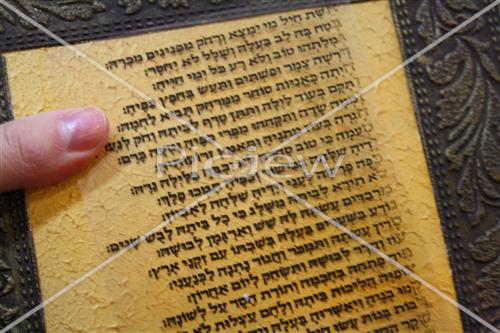 אֵשֶׁת חַיִל מִי יִמְצָא וְרָחֹק מִפְּנִינִים מִכְרָהּ:
בָּטַח בָּהּ לֵב בַּעְלָהּ וְשָׁלָל לֹא יֶחְסָר:
גְּמָלַתְהוּ טוֹב וְלֹא רָע כֹּל יְמֵי חַיֶּיהָ:
דָּרְשָׁה צֶמֶר וּפִשְׁתִּים וַתַּעַשׂ בְּחֵפֶץ כַּפֶּיהָ:
הָיְתָה כָּאֳנִיּוֹת סוֹחֵר מִמֶּרְחָק תָּבִיא לַחְמָהּ:
וַתָּקָם בְּעוֹד לַיְלָה וַתִּתֵּן טֶרֶף לְבֵיתָהּ וְחֹק
זָמְמָה שָׂדֶה וַתִּקָּחֵהוּ מִפְּרִי כַפֶּיהָ כָּרֶם:
בְעוֹז מָתְנֶיהָ
טָעֲמָה כִּי טוֹב נֵרָהּ:
יָדֶיהָ פָלֶךְ:
כַּפָּהּ פָּרְשָׂה שִׁלְּחָה לָאֶבְיוֹן:
לֹא תִירָא לְבֵיתָהּ מִשָּׁלֶג כִּי כָל בֵּיתָהּ לָבֻשׁ שָׁנִים:
מַרְבַדִּים עָשְׂתָה לָּהּ שֵׁשׁ וְאַרְגָּמָן לְבוּשָׁהּ:
נוֹדָע בַּשְּׁעָרִים בַּעְלָהּ בְּשִׁבְתּוֹ עִם זִקְנֵי אָרֶץ:
סָדִין עָשְׂתָה וַתִּמְכֹּר וַחֲגוֹר נָתְנָה לַכְּנַעֲנִי:
לְבוּשָׁהּ וַתִּשְׂחַק לְיוֹם אַחֲרוֹן:
פָּתְחָה בְחָכְמָה וְתוֹרַת חֶסֶד עַל לְשׁוֹנָהּ:
הֲלִיכוֹת בֵּיתָהּ וְלֶחֶם עַצְלוּת לֹא
קָמוּ בָנֶיהָ וַיְאַשְּׁרוּהָ בַּעְלָהּ
בָּנוֹת
Picjew